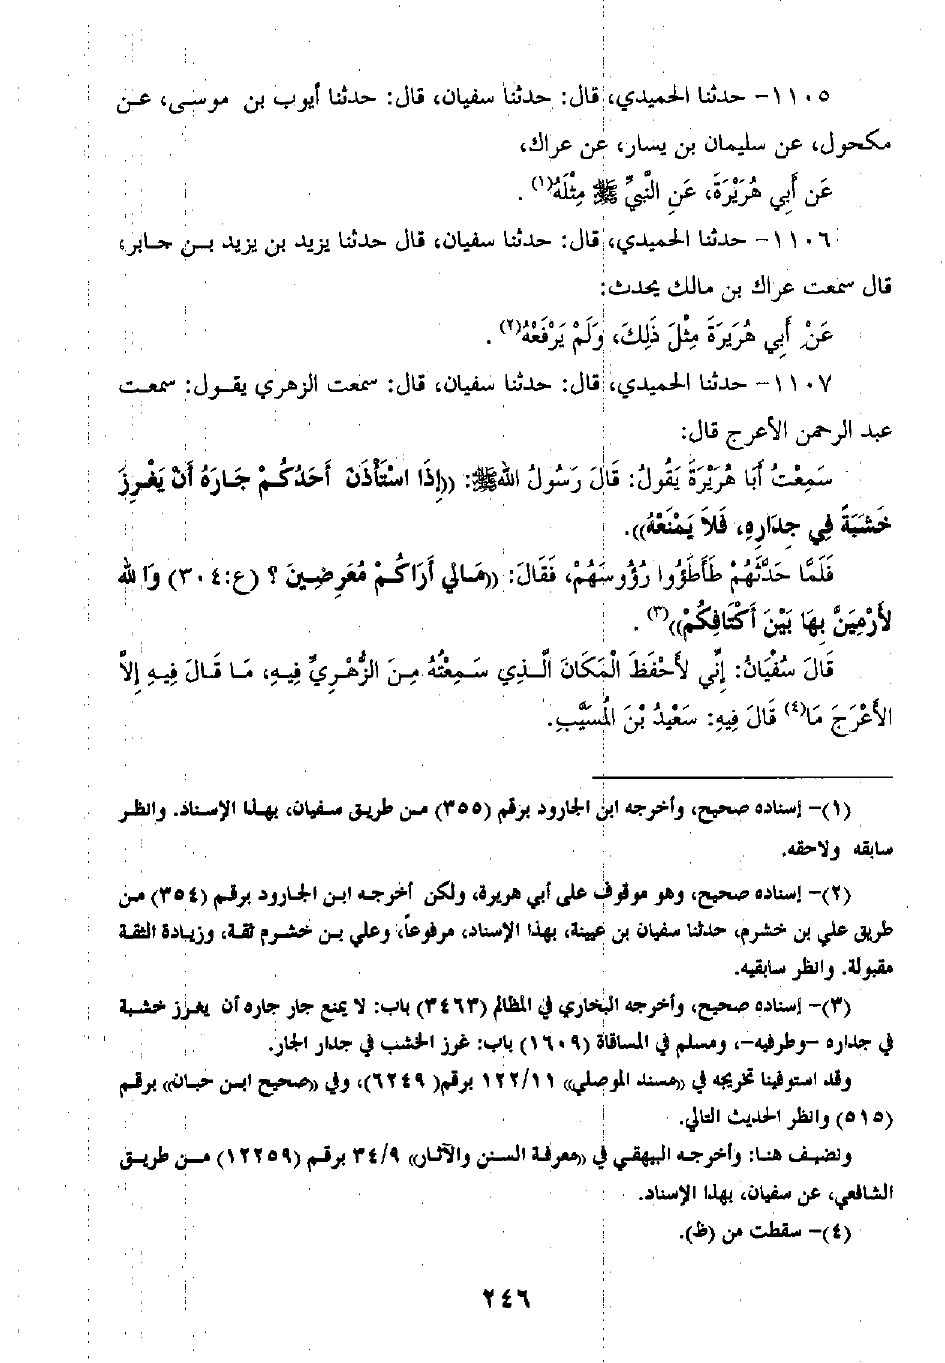 ١١٠٥- حدثنا الحميدي، قال: حدثنا سفيان، قال: حدثنا أيوب بن موسى، عن
مكحول، عن سليمان بن يسار، عن عراك،
عَن أَبِي هُرَيْرَةَ، عَنِ النَّبِيِّ ﷺ مِثْلَهُ(١).
١١٠٦- حدثنا الحميدي، قال: حدثنا سفيان، قال حدثنا يزيد بن يزيد بن جابر،
قال سمعت عراك بن مالك يحدث:
عَنْ أَبِي هُرَيَرَةَ مِثْلَ ذَلِكَ، وَلَمْ يَرْفَعْهُ(٢).
١١٠٧- حدثنا الحميدي، قال: حدثنا سفيان، قال: سمعت الزهري يقول: سمعت
عبد الرحمن الأعرج قال:
سَمِعْتُ أَبَا هُرَيْرَةَ يَقُولُ: قَالَ رَسُولُ اللهﷺ: ((إِذَا اسْتَأْذَنَ أَحَدُكُمْ جَارَهُ أَنْ يَغْرِزَ
خَشَبَةً فِي جِدَارِهِ، فَلاَ يَمْنَعْهُ)).
فَلَمَّا حَدَّثَهُمْ طَأْطَؤُوا رُؤُوسَهُمْ، فَقَالَ: ((مَالي أَرَاكُمْ مُعَرِضِينَ ؟ (ع:٣٠٤) وَاللهِ
لأَرْمِيَنَّ بِهَا بَيْنَ أَكْتَافِكُمْ))(٣).
قَالَ سُفْيَانُ: إِنِّي لأَحْفَظَ الْمَكَانَ الَّذِي سَمِعْتُهُ مِنَ الزُّهْرِيِّ فِيهِ، مَا قَالَ فِيهِ إِلاَّ
الأَعْرَجَ مَا(٤) قَالَ فِيهِ: سَعِيْدُ بْنَ الْمُسَيَّبِ.
(١)- إسناده صحيح، وأخرجه ابن الجارود برقم (٣٥٥) من طريق سفيان، بهذا الإسناد. وانظر
سابقه ولاحقه.
(٢)- إسناده صحيح، وهو موقوف على أبي هريرة، ولكن أخرجه ابن الجارود برقم (٣٥٤) من
طريق علي بن خشرم، حدثنا سفيان بن عيينة، بهذا الإسناد، مرفوعاً، وعلي بن خشرم ثقة، وزيادة الثقة
مقبولة. وانظر سابقيه.
(٣)- إسناده صحيح، وأخرجه البخاري في المظالم (٣٤٦٣) باب: لا يمنع جار جاره أن يغرز خشبة
في جداره -وطرفيه-، ومسلم في المساقاة (١٦٠٩) باب: غرز الخشب في جدار الجار.
وقد استوفينا تخريجه في ((مسند الموصلي)) ١٢٢/١١ برقم( ٦٢٤٩)، وفي ((صحيح ابن حبان)) برقم
(٥١٥) وانظر الحديث التالي.
ونضيف هنا: وأخرجه البيهقي في ((معرفة السنن والآثار)) ٣٤/٩ برقم (١٢٢٥٩) من طريق
الشافعي، عن سفيان، بهذا الإسناد.
(٤)- سقطت من (ظ).
٢٤٦